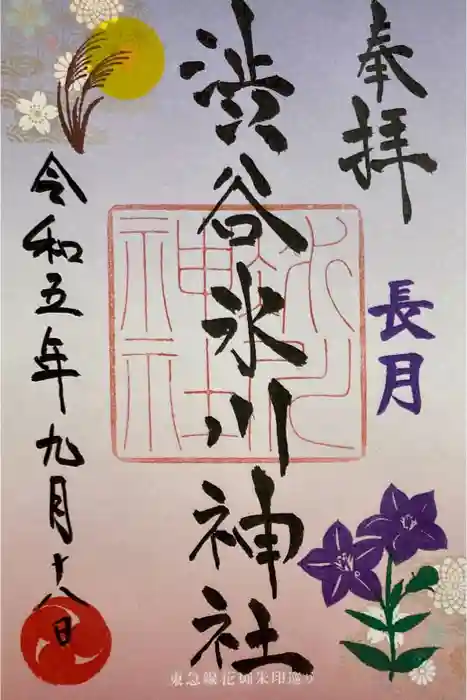 奉拝
長月
渋谷氷川神社
令和五年九月十八日
氷川神社
東急線花御朱印巡り